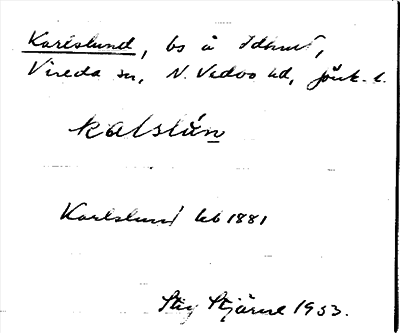 Karlslund, bs å Idhult,
Vireda sn, N. Vedbo hd, Jönk. l.
kalslún
Karlslund hb 1881
Stig Stjärne 1953.